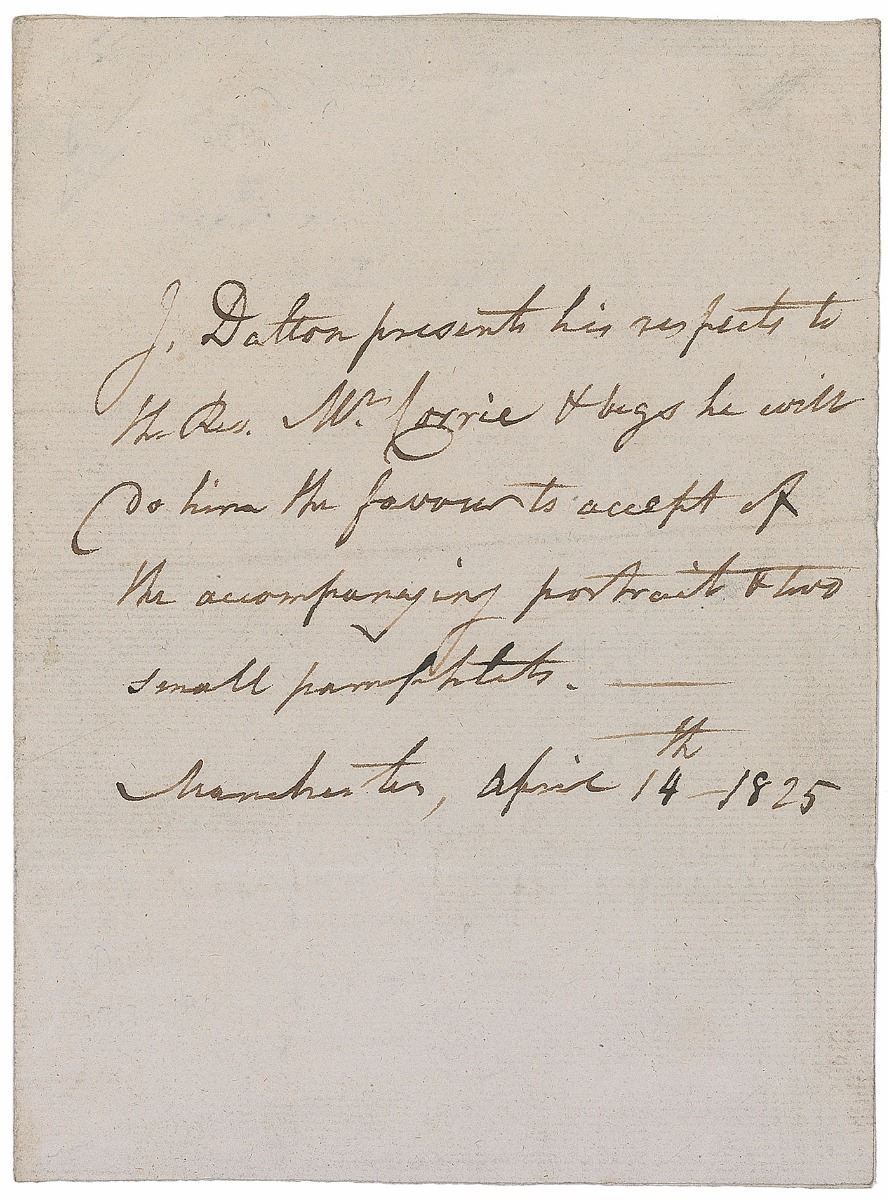 J. Dalton presents his respects to
the Rev. Mr. Corrie & begs he will
do him the favour to accept of
the accompanying portrait & two
small pamphlets. —
Manchester, April 14th — 1825